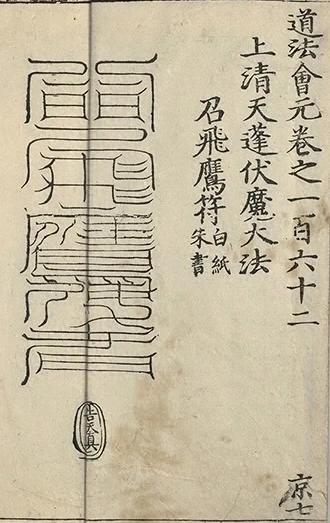 道法會元卷之一百六十二
上清天蓬伏魔大法
召飛鷹符白紙朱書
京七